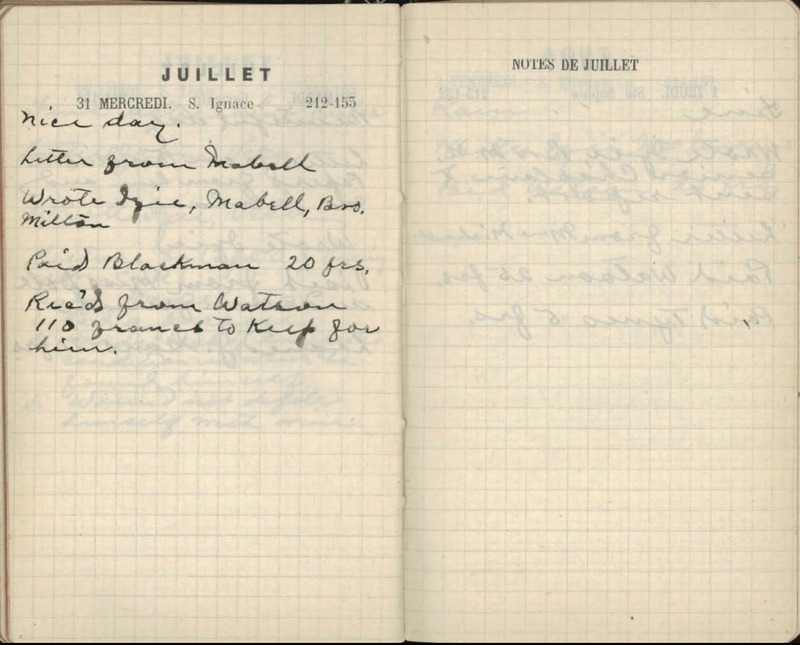 JUILLET
31 MERCREDI. S. Ignace 212-153
Nice day.
Letter from Mabell
Wrote Izie, Mabell, Bro.
Milton
Paid Blackman 20 frs.
Rec'd from Watson
110 francs to Keep for
him.
NOTES DE JUILLET